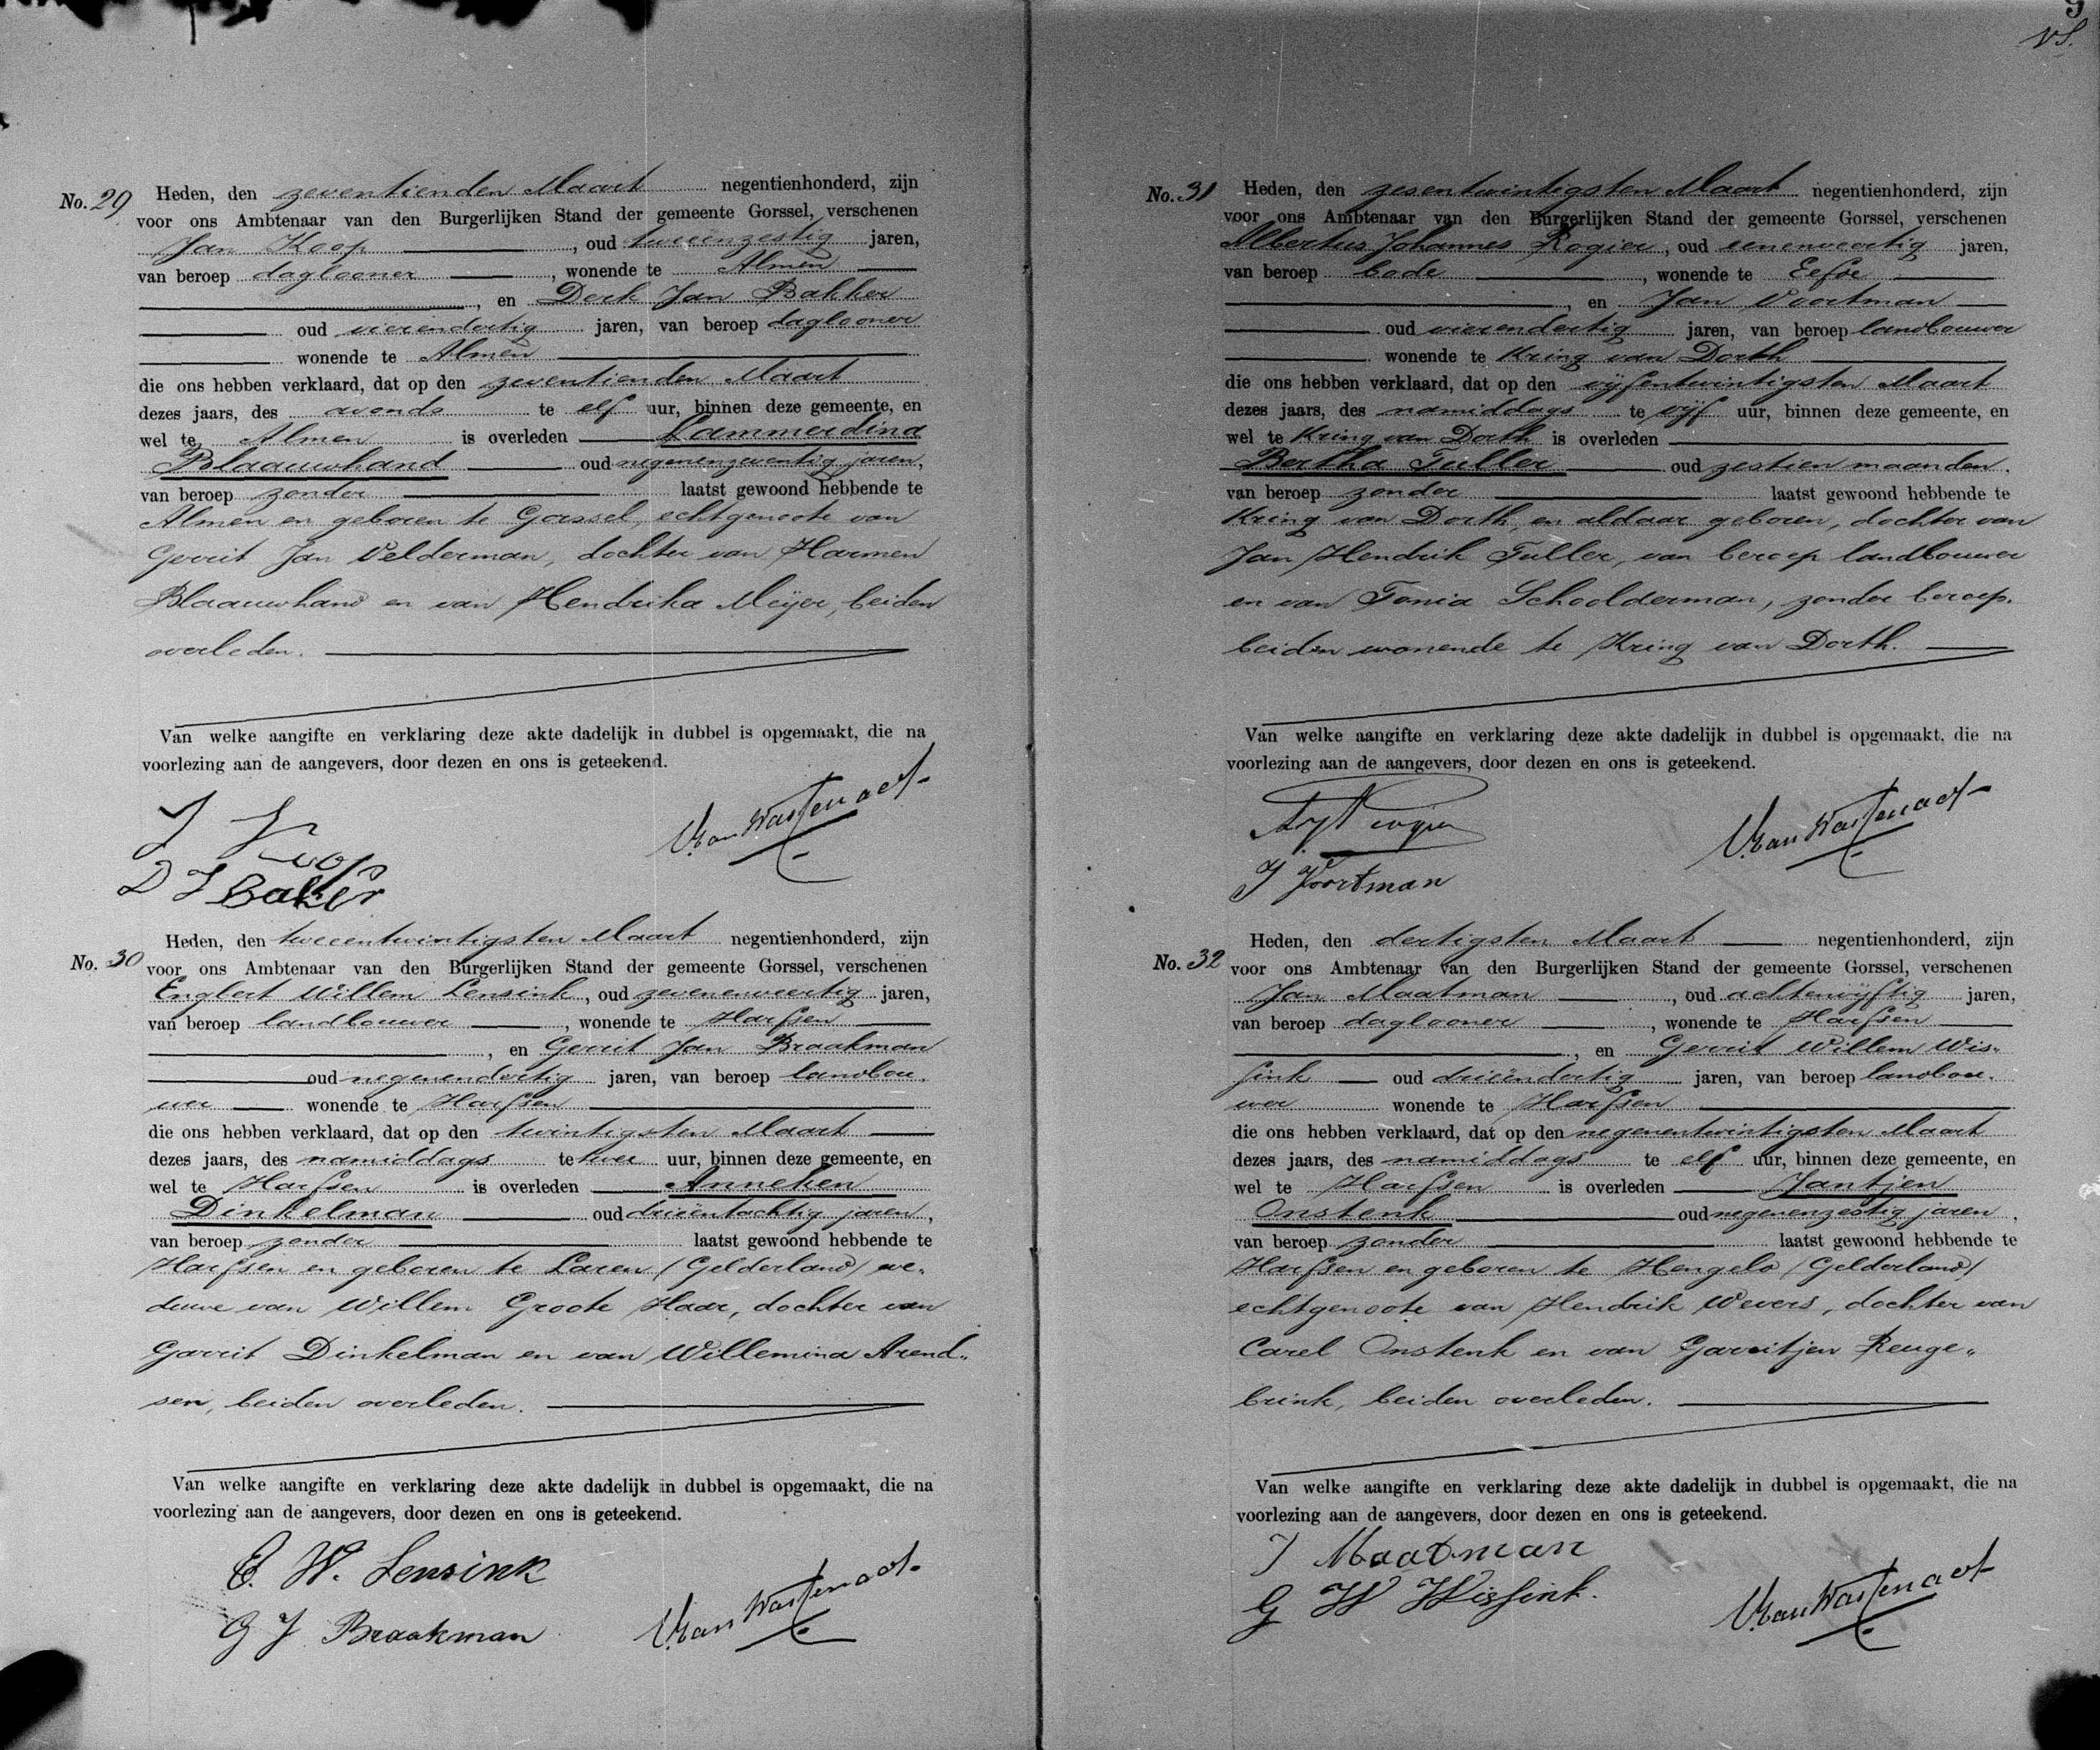 No. 29 Heden, den zeventienden Maart negentienhonderd, zijn
voor ons Ambtenaar van den Burgerlijken Stand der gemeente Gorssel, verschenen
Jan Koop, oud tweeënzestig jaren,
van beroep daglooner, wonende te Almen
, en Derk Jan Bakker
oud vierendertig jaren, van beroep daglooner
wonende te Almen
die ons hebben verklaard, dat op den zeventienden Maart
dezes jaars, des avonds te elf uur, binnen deze gemeente, en
wel te Almen is overleden Lammerdina
Blaauwhand oud negenenzeventig jaren,
van beroep zonder laatst gewoond hebbende te
Almen en geboren te Gorssel, echtgenoote van
Gerrit Jan Velderman, dochter van Harmen
Blaauwhand en van Hendrika Meijer, beiden
overleden.
Van welke aangifte en verklaring deze akte dadelijk in dubbel is opgemaakt, die na
voorlezing aan de aangevers, door dezen en ons is geteekend.
J Koop
D J Bakker
No. 30 Heden, den tweeentwintigsten Maart negentienhonderd, zijn
voor ons Ambtenaar van den Burgerlijken Stand der gemeente Gorssel, verschenen
Englert Willem Lensink, oud zevenenveertig jaren,
van beroep landbouwer, wonende te Harfsen
, en Gerrit Jan Braakman
oud negenendertig jaren, van beroep landbou„
wer wonende te Harfsen
die ons hebben verklaard, dat op den twintigsten Maart
dezes jaars, des namiddags te twee uur, binnen deze gemeente, en
wel te Harfsen is overleden Anneken
Dinkelman oud drieëntachtig jaren,
van beroep zonder laatst gewoond hebbende te
Harfsen en geboren te Laren (Gelderland) we„
duwe van Willem Groote Haar, dochter van
Garrit Dinkelman en van Willemina Arend„
sen, beiden overleden.
Van welke aangifte en verklaring deze akte dadelijk in dubbel is opgemaakt, die na
voorlezing aan de aangevers, door dezen en ons is geteekend.
E. W. Lensink
G J Braakman
No. 31 Heden, den zesentwintigsten Maart negentienhonderd, zijn
voor ons Ambtenaar van den Burgerlijken Stand der gemeente Gorssel, verschenen
Albertus Johannes Rogier, oud eenenveertig jaren,
van beroep bode, wonende te Eefde
, en Jan Voortman
oud vierendertig jaren, van beroep landbouwer
wonende te Kring van Dorth
die ons hebben verklaard, dat op den vijfentwintigsten Maart
dezes jaars, des namiddags te vijf uur, binnen deze gemeente, en
wel te Kring van Dorth is overleden
Bertha Tuller oud zestien maanden,
van beroep zonder laatst gewoond hebbende te
Kring van Dorth, en aldaar geboren, dochter van
Jan Hendrik Tuller, van beroep landbouwer
en van Tonia Schoolderman, zonder beroep,
beiden wonende te Kring van Dorth.
Van welke aangifte en verklaring deze akte dadelijk in dubbel is opgemaakt, die na
voorlezing aan de aangevers, door dezen en ons is geteekend.
J Voortman
No. 32 Heden, den dertigsten Maart negentienhonderd, zijn
voor ons Ambtenaar van den Burgerlijken Stand der gemeente Gorssel, verschenen
Jan Maatman, oud achtenvijftig jaren,
van beroep daglooner, wonende te Harfsen
, en Gerrit Willem Wis„
sink oud drieëndertig jaren, van beroep landbou„
wer wonende te Harfsen
die ons hebben verklaard, dat op den negenentwintigsten Maart
dezes jaars, des namiddags te elf uur, binnen deze gemeente, en
wel te Harfsen is overleden Jantjen
Onstenk oud negenenzestig jaren,
van beroep zonder laatst gewoond hebbende te
Harfsen en geboren te Hengelo (Gelderland)
echtgenoote van Hendrik Wevers, dochter van
Carel Onstenk en van Garritjen Reuge„
brink, beiden overleden.
Van welke aangifte en verklaring deze akte dadelijk in dubbel is opgemaakt, die na
voorlezing aan de aangevers, door dezen en ons is geteekend.
J Maatman
G W Wissink.